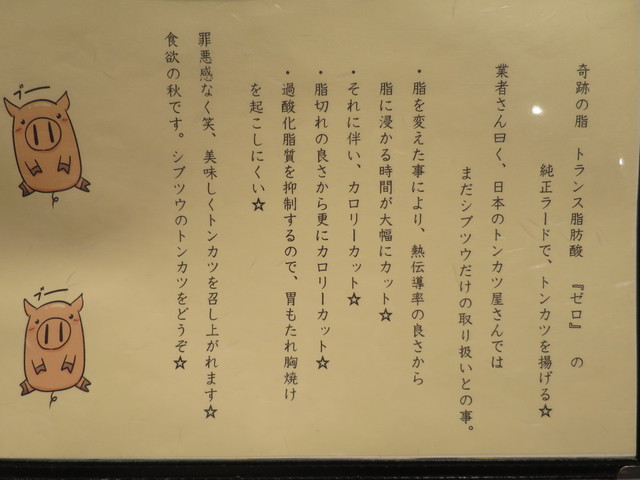 奇跡の脂　トランス脂肪酸　『ゼロ』　の
純正ラードで、トンカツを揚げる☆
業者さん曰く、日本のトンカツ屋さんでは
まだシブツウだけの取り扱いとの事。
・脂を変えた事により、熱伝導率の良さから
脂に浸かる時間が大幅にカット☆
・それに伴い、カロリーカット☆
・脂切れの良さから更にカロリーカット☆
・過酸化脂質を抑制するので、胃もたれ胸焼け
を起こしにくい☆
罪悪感なく笑、美味しくトンカツを召し上がれます☆
食欲の秋です。シブツウのトンカツをどうぞ☆
ブー
ブー